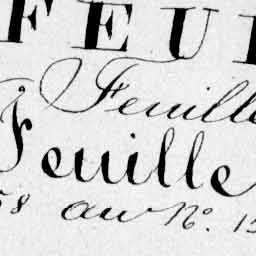 FEUI
Feuille
Feuille
58 au N.º 15